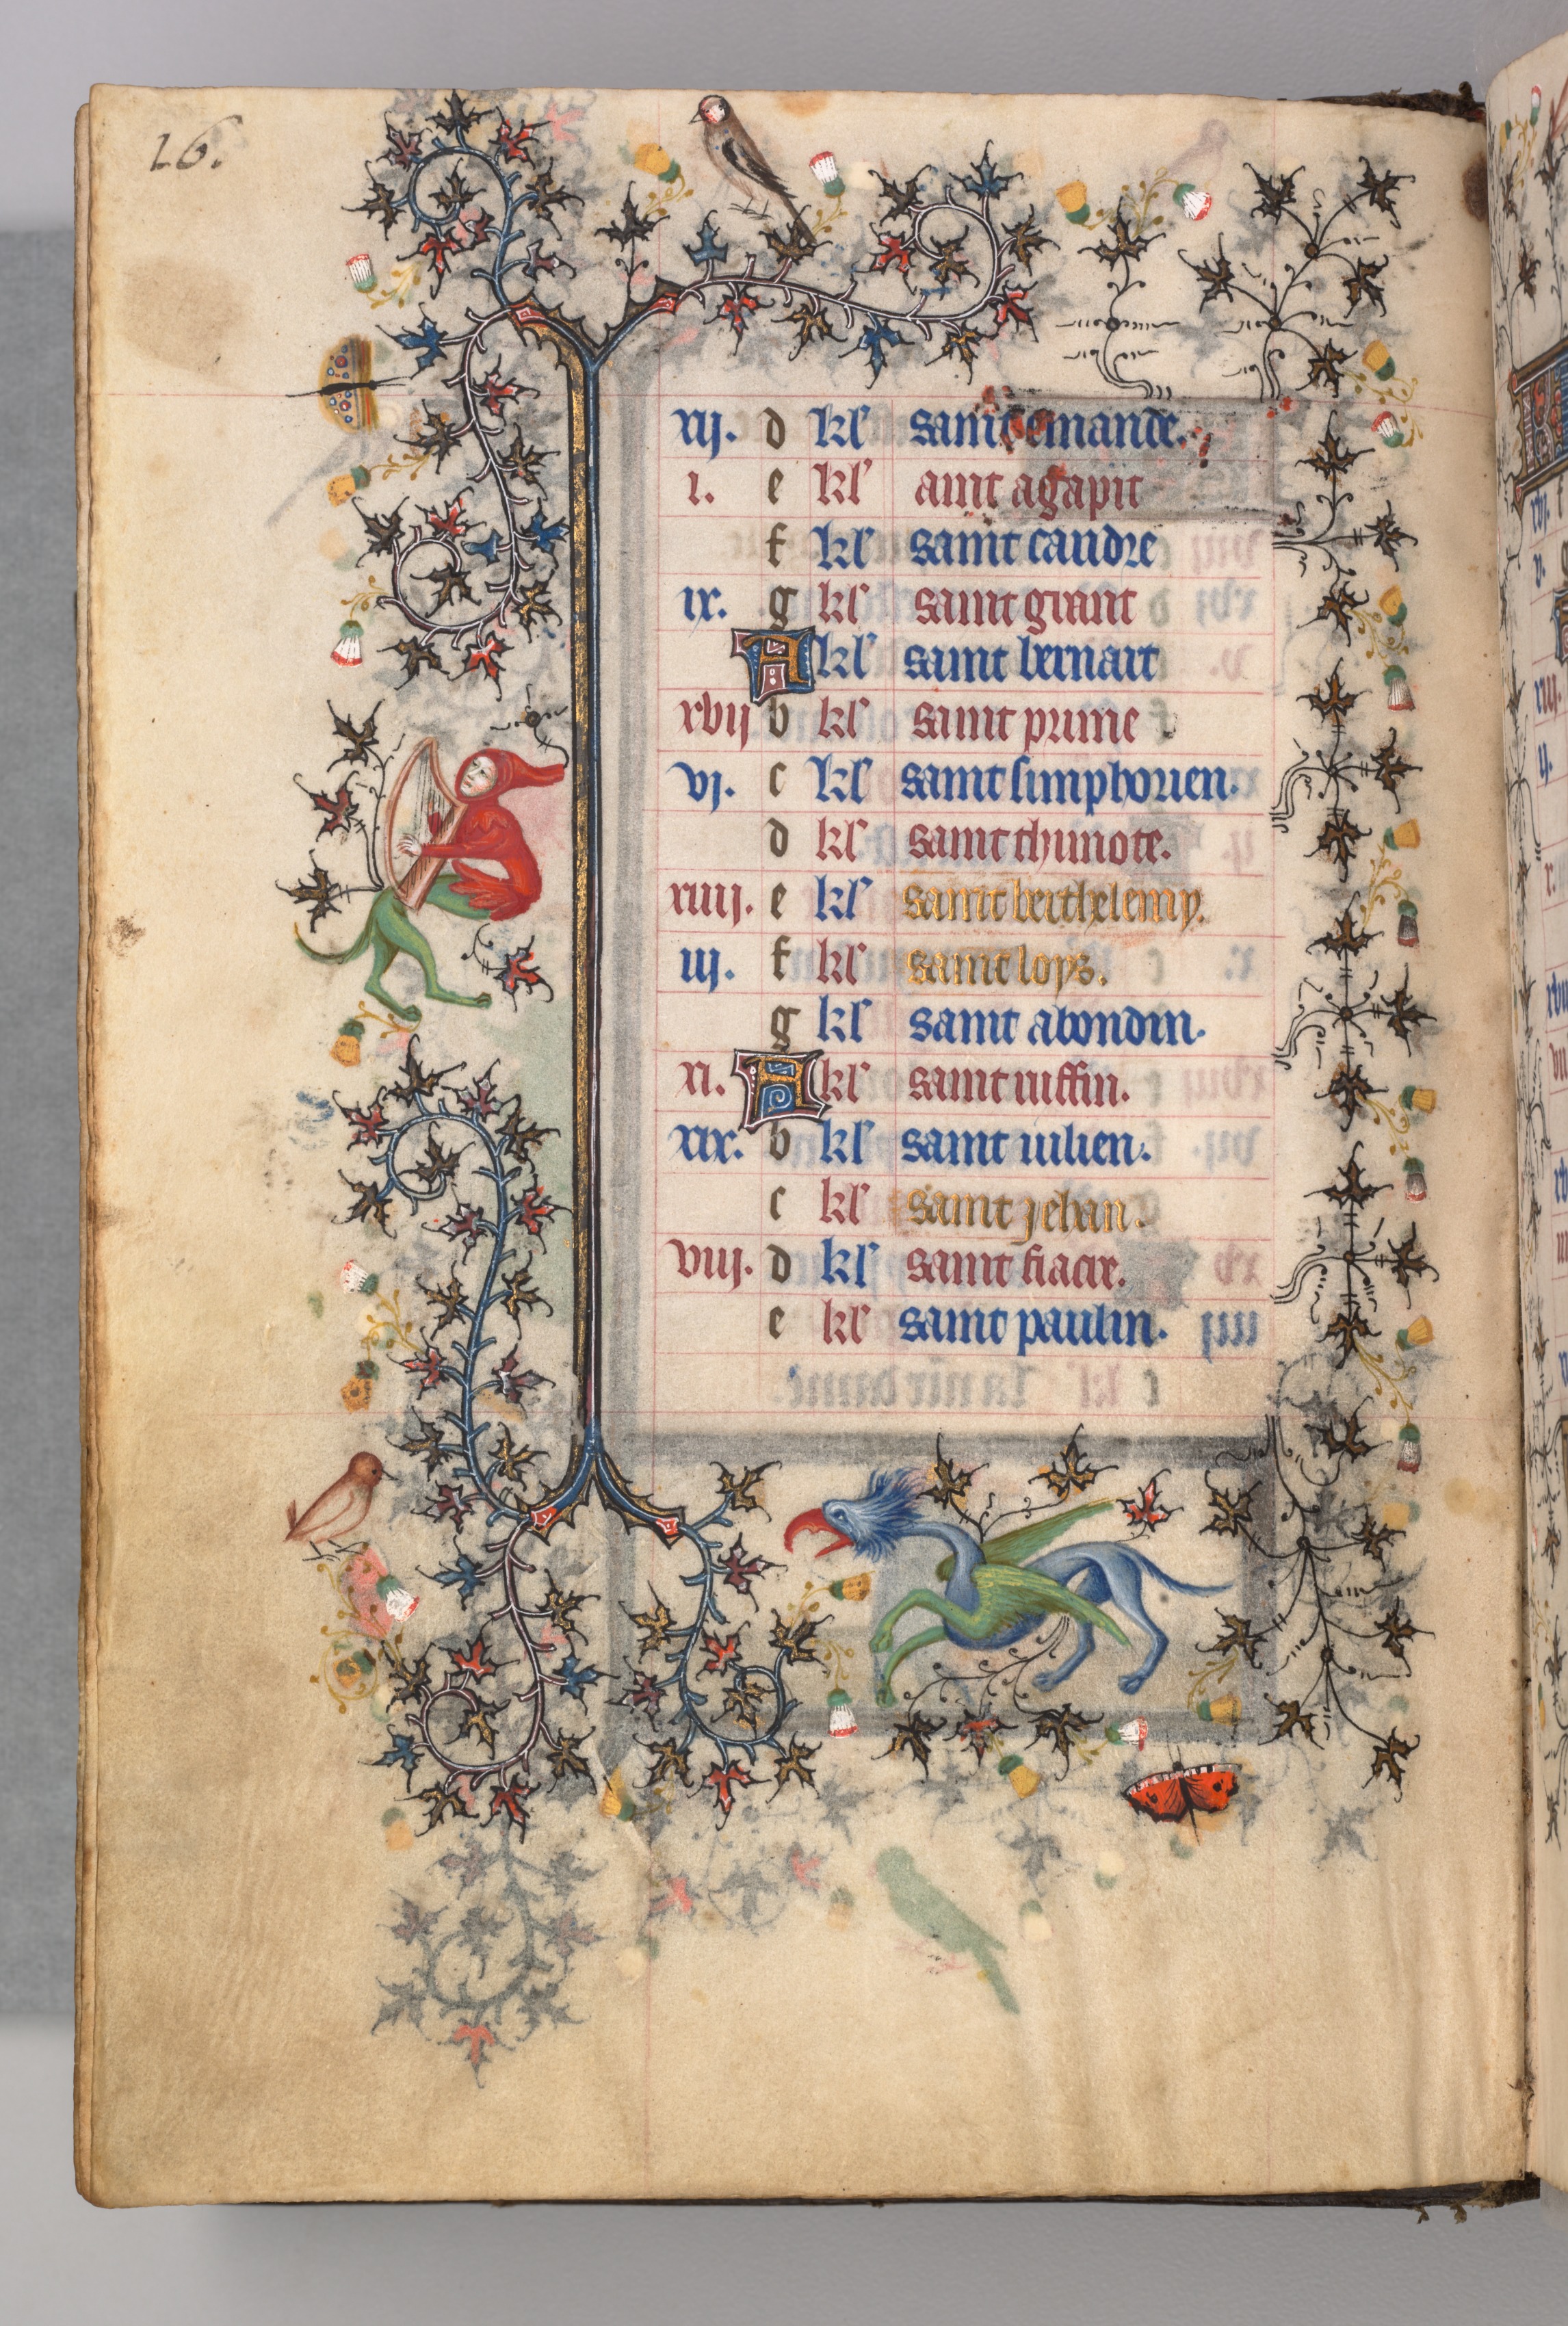 16.
xij. d kl' saint emande.
i. e kl' aint agapit
f kl' saint candre
ix. g kl' saint giant
A kl' saint bernart
xvij b kl' saint prime
vj. c kl' saint simphorien.
d kl' saint thimote.
xiiij. e kl' saint berthelemy.
iij. f kl' saint loys.
g kl' saint abondin.
xi. A kl' saint ruffin.
xix. b kl' saint iulien.
c kl' saint jehan.
viij. d kl' saint fiacre.
e kl' saint paulin.